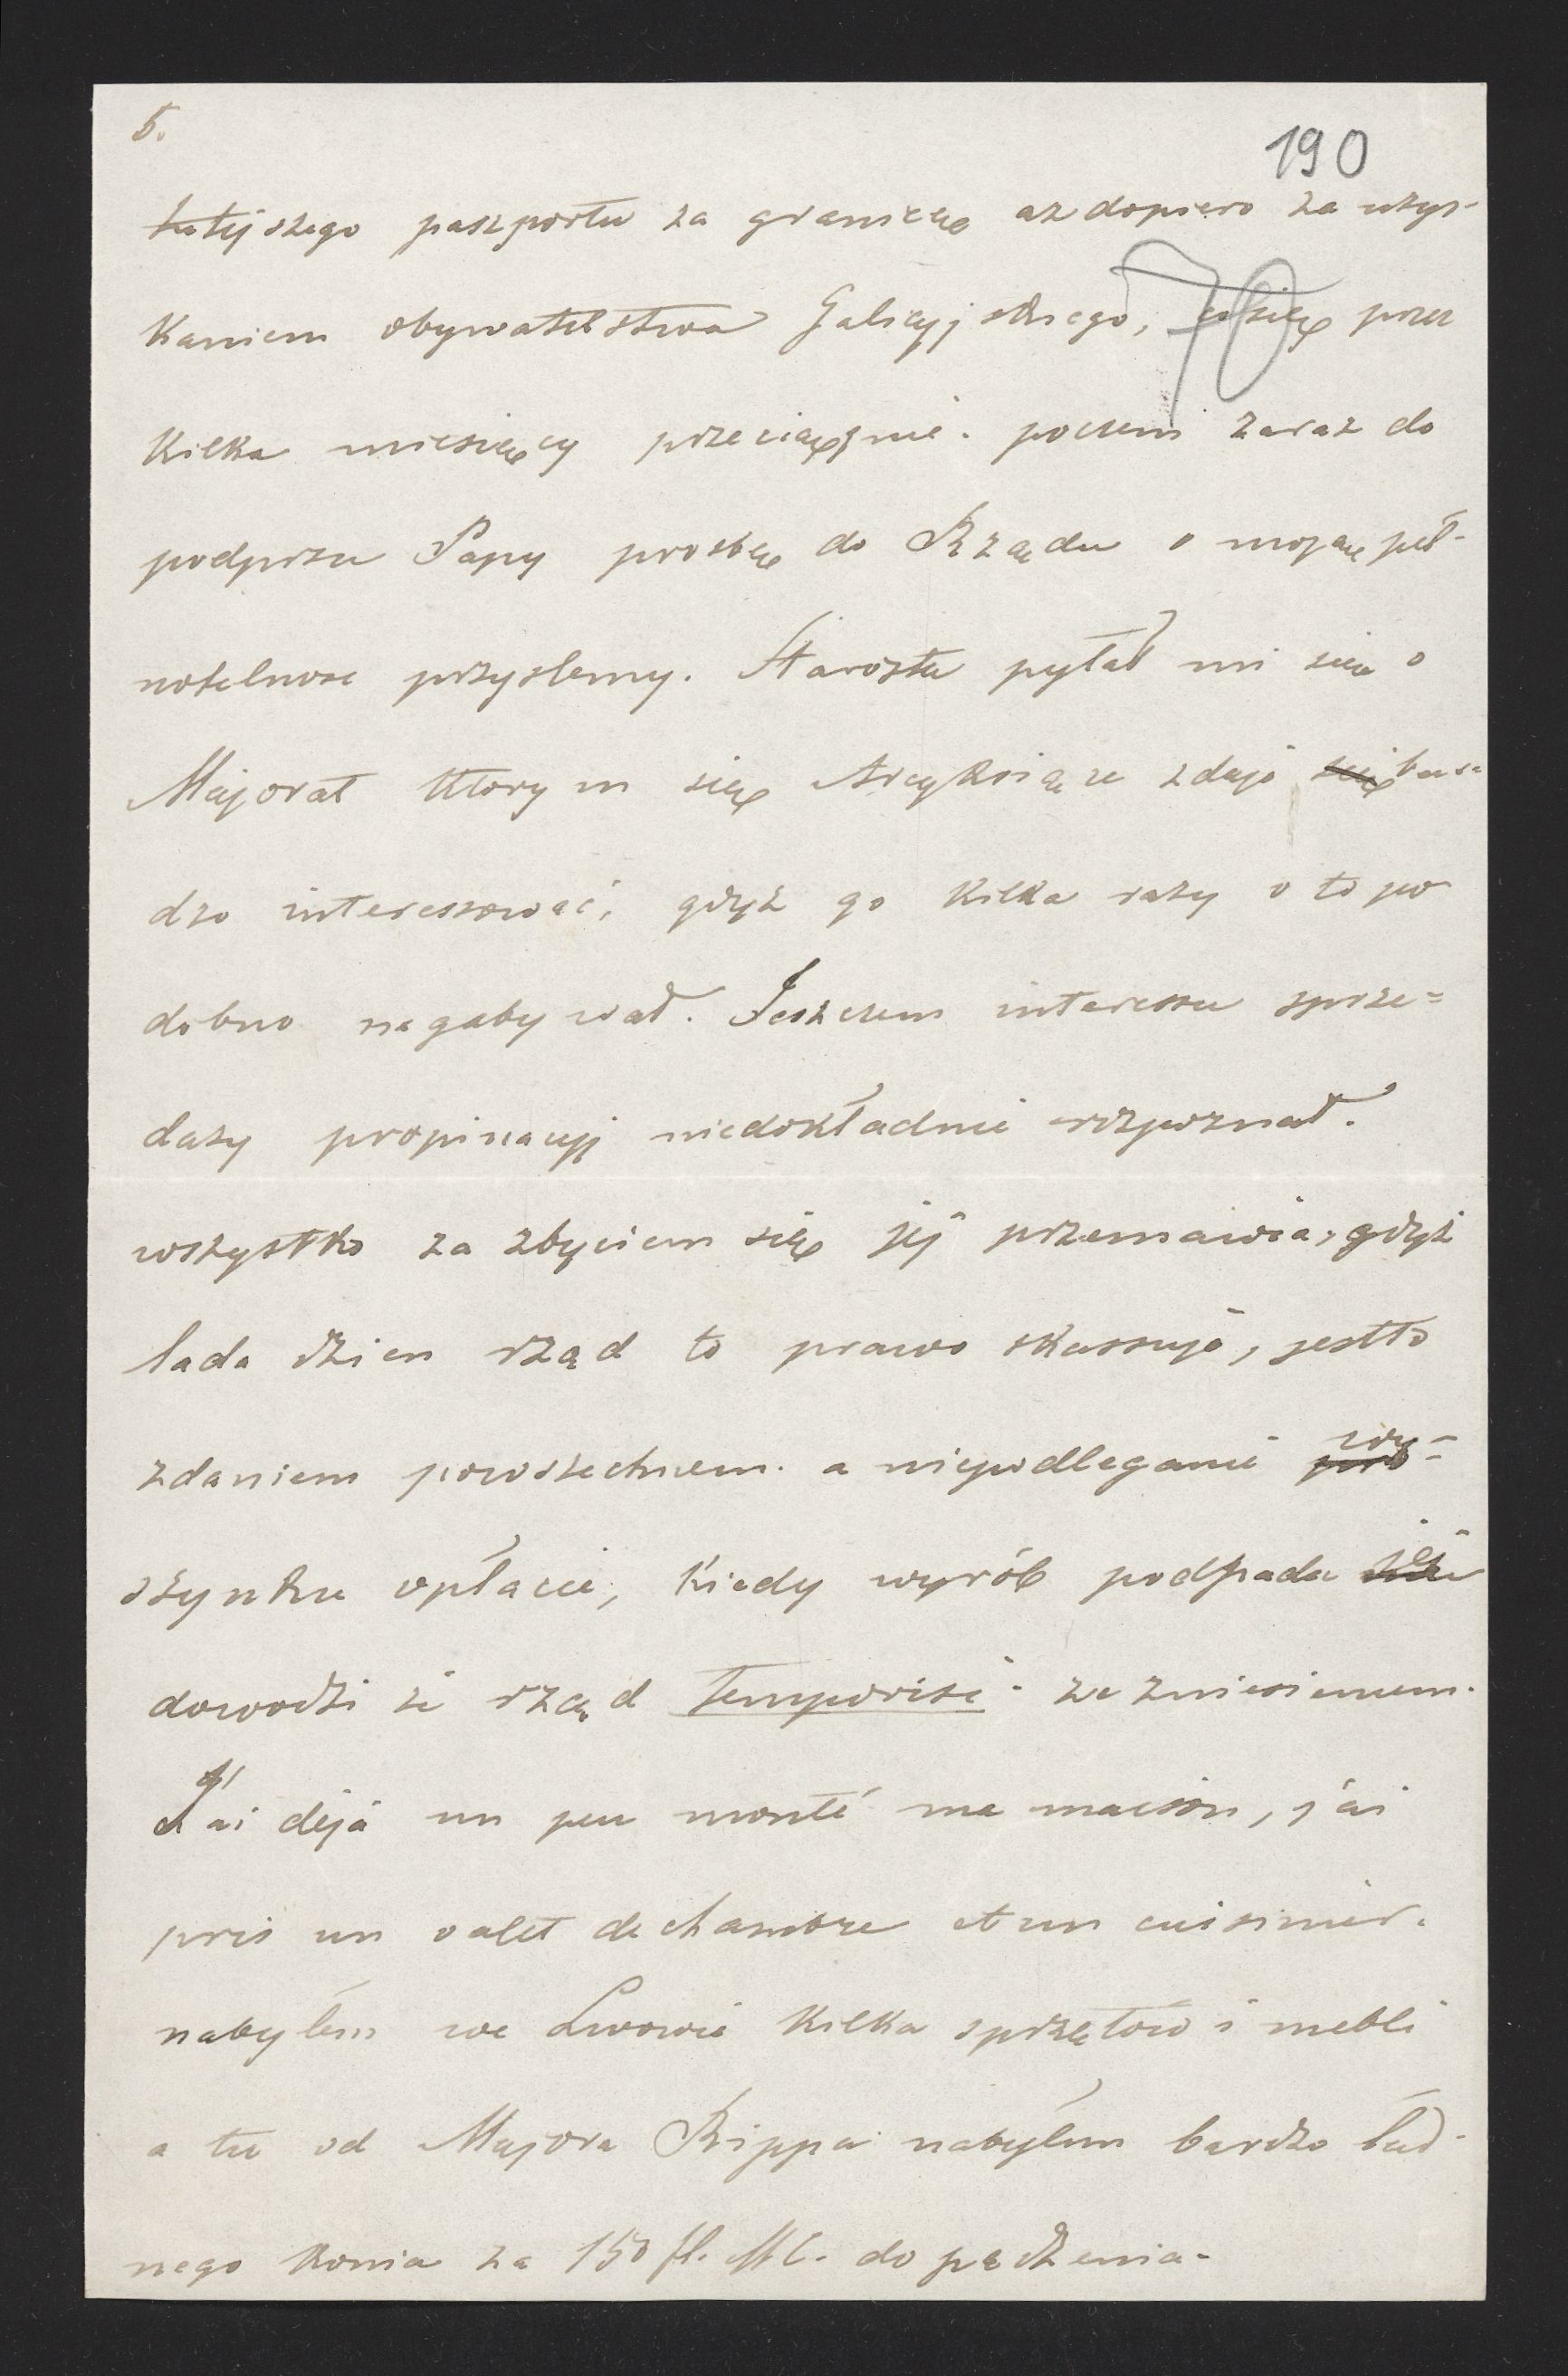 5.
190
70
tutejszego paszportu za granicę az dopiero za uzys-
kaniem obywatelstwa Galicyjskiego, co się przez
kilka miesięcy przeciągnie. poczem zaraz do
podpisu Papy prosbę do Rządu o moją peł-
noletnosc przyslemy. Starosta pytał mi się o
Majorat ktorym się Arcyksiąze zdaje się bar-
dzo interessować, gdyż go kilka razy o to po
dobno nagabywał. Jeszczem interessu sprze=
dazy propinacyj niedokładnie rozpoznał.
wszystko za zbyciem się jej przemawia, gdyż
lada dzien rząd to prawo skassuje, jestto
zdaniem powszechnem. a niepodleganie pro wy-
szynku opłacie, kiedy wyrób podpada jej
dowodzi że rząd temporise ze zniesieniem.
J'ai déjà un peu monté ma maison, j'ai
pris un valet de chambre et un cuisinier.
nabyłem we Lwowie kilka sprzętów i mebli
a tu od Majora Rippa nabyłem bardzo ład-
nego konia za 150 fl. MC. do pędzenia-